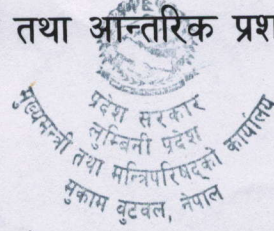 तथा आन्तरिक प्रश
प्रदेश सरकार
लुम्बिनी प्रदेश
मुख्यमन्त्री तथा मन्त्रिपरिषद्को कार्यालय
मुकाम बुटवल, नेपाल